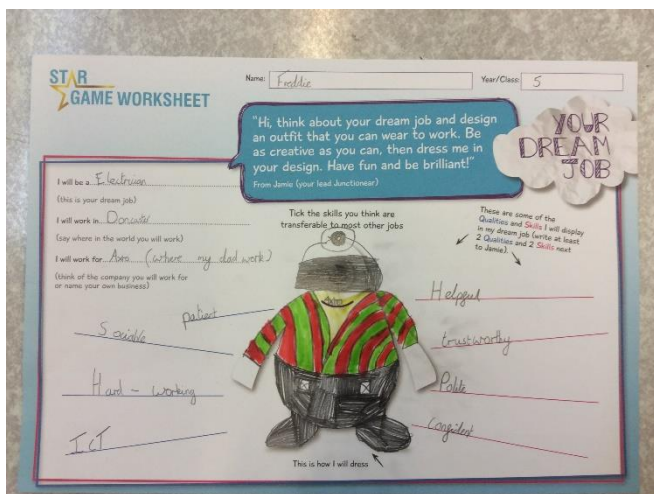 STAR
GAME WORKSHEET
Name: Freddie
Year/Class: 5
"Hi, think about your dream job and design
an outfit that you can wear to work. Be
as creative as you can, then dress me in
your design. Have fun and be brilliant!"
From Jamie (your lead Junctionear)
YOUR
DREAM
JOB
I will be a Electrician
(this is your dream job)
I will work in
(say where in the world you will work)
I will work for (where my dad work)
(think of the company you will work for
or name your own business)
Tick the skills you think are
transferable to most other jobs
These are some of the
Qualities and Skills I will display
in my dream job (write at least
2 Qualities and 2 Skills next
to Jamie).
patient
Sociable
Hard - working
IcT
Helpful
trustworthy
Polite
Confident
This is how I will dress